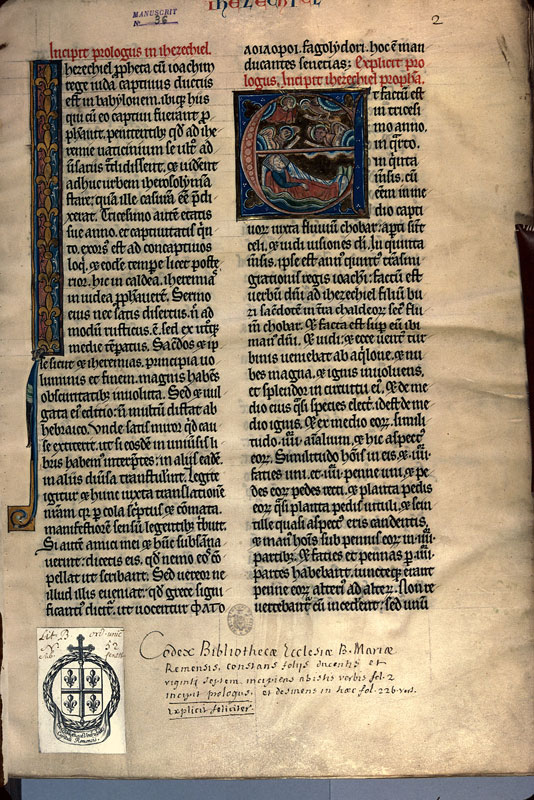 IHEZECHIEL
MANUSCRIT
N. 36
2
Incipit prologus in ihezechiel.
Ihezechiel ppheta cū ioachim
rege iuda captiuus ductus
est in babylonem. ibiq; hiis
qui cū eo captiui fuerant p
phauit. penitentib; qd ad ihe
remie uaticinium se ult ad
uīsariis tdidissent. & uidēnt
adhuc urbem iherosolymā
stare; quā ille casurā eē p̄di
xerat. Tricesimo autē etatis
sue anno. et captiuitatis qui
to. exorsꝰ est ad concaptiuos
loq̄. & eodē tempe licet poste
rior. hic in caldea. iheremia
in iudea pphauerē. Sermo
eius nec satis disertus. n̄ ad
modū rusticus ē. sed ex utq;
medie tēpatus. Sacdos & ip
se sicut & iheremias. principia uo
luminis et finem. magnis habēs
obscuritatib; inuoluta. Sed & uul
gata eꝰ editio. n̄ multū distat ab
hebraico. Vnde satis miror qd cau
se extiterit. ut si eosdē in uniūsis li
bris habemꝰ intp̄tes; in aliis eadē.
in aliis diūsa tnstulint. Legite
igitur & hunc iuxta translationē
nram. qr p cola sc̄ptus & cōmata.
manifestiorē sensū legentib; tbuit.
Si autē amici mei & hūc subsāna
uerint; dicetis eis. qd nemo eos cō
pellat ut scribant. Sed uereor ne
illud illis eueniat; qd grece signi
ficantiꝰ dictr. ut uocentur ΦΑΓΟ
ΛΟΙΔΟΡΟΙ. fagolydori. hoc ē man
ducantes senecias: Explicit pro
logus. Incipit ihezechiel propha.
Et factū est
in tricesi
mo anno.
in qrto.
in qinta
mēsis. cū
eēm in me
dio capti
uor iuxta fluuiū chobar; apti sūt
celi. & uidi uisiones dī. In quinta
mēsis. ipse est annꝰ quintꝰ trāsmi
grationis regis ioachi; factū est
uerbū dn̄i ad ihezechiel filiū bu
zi sacdotē in tra chaldeor sec̄ flu
m̄ chobar. & facta est sup eū ibi
manꝰ dn̄i. & uidi; & ecce uentꝰ tur
binis ueniebat ab aq̄lone. & nu
bes magna. & ignis inuoluens.
et splendor in circuitu eꝰ. & de me
dio eius q̄si species electi. id est de me
dio ignis. & ex medio eor. simili
tudo .iiii. aīalium. & hic aspectꝰ
eor. Similitudo hōis in eis. & .iiii.
facies uni. et .iiii. penne uni. & pe
des eor pedes recti. & planta pedis
eor. q̄si planta pedis uituli. & scin
tille quasi aspectꝰ eris candentis.
& manꝰ hōis sub pennis eor in .iiii.
partib;. & facies et pennas p .iiii.
partes habebant. iuncteq; erant
penne eor altiꝰ ad altex. Non re
uertebantr cū incederēt; sed unū
Codex Bibliothecæ Ecclesiæ B. Mariæ
Remensis, constans folijs ducentis et
viginti septem. incipiens à bistis verbis fol. 2
incipit prologus. et desinens in hæc fol. 226. vers.
Explicit feliciter.
Lit. B
ord. unic
N.° 52